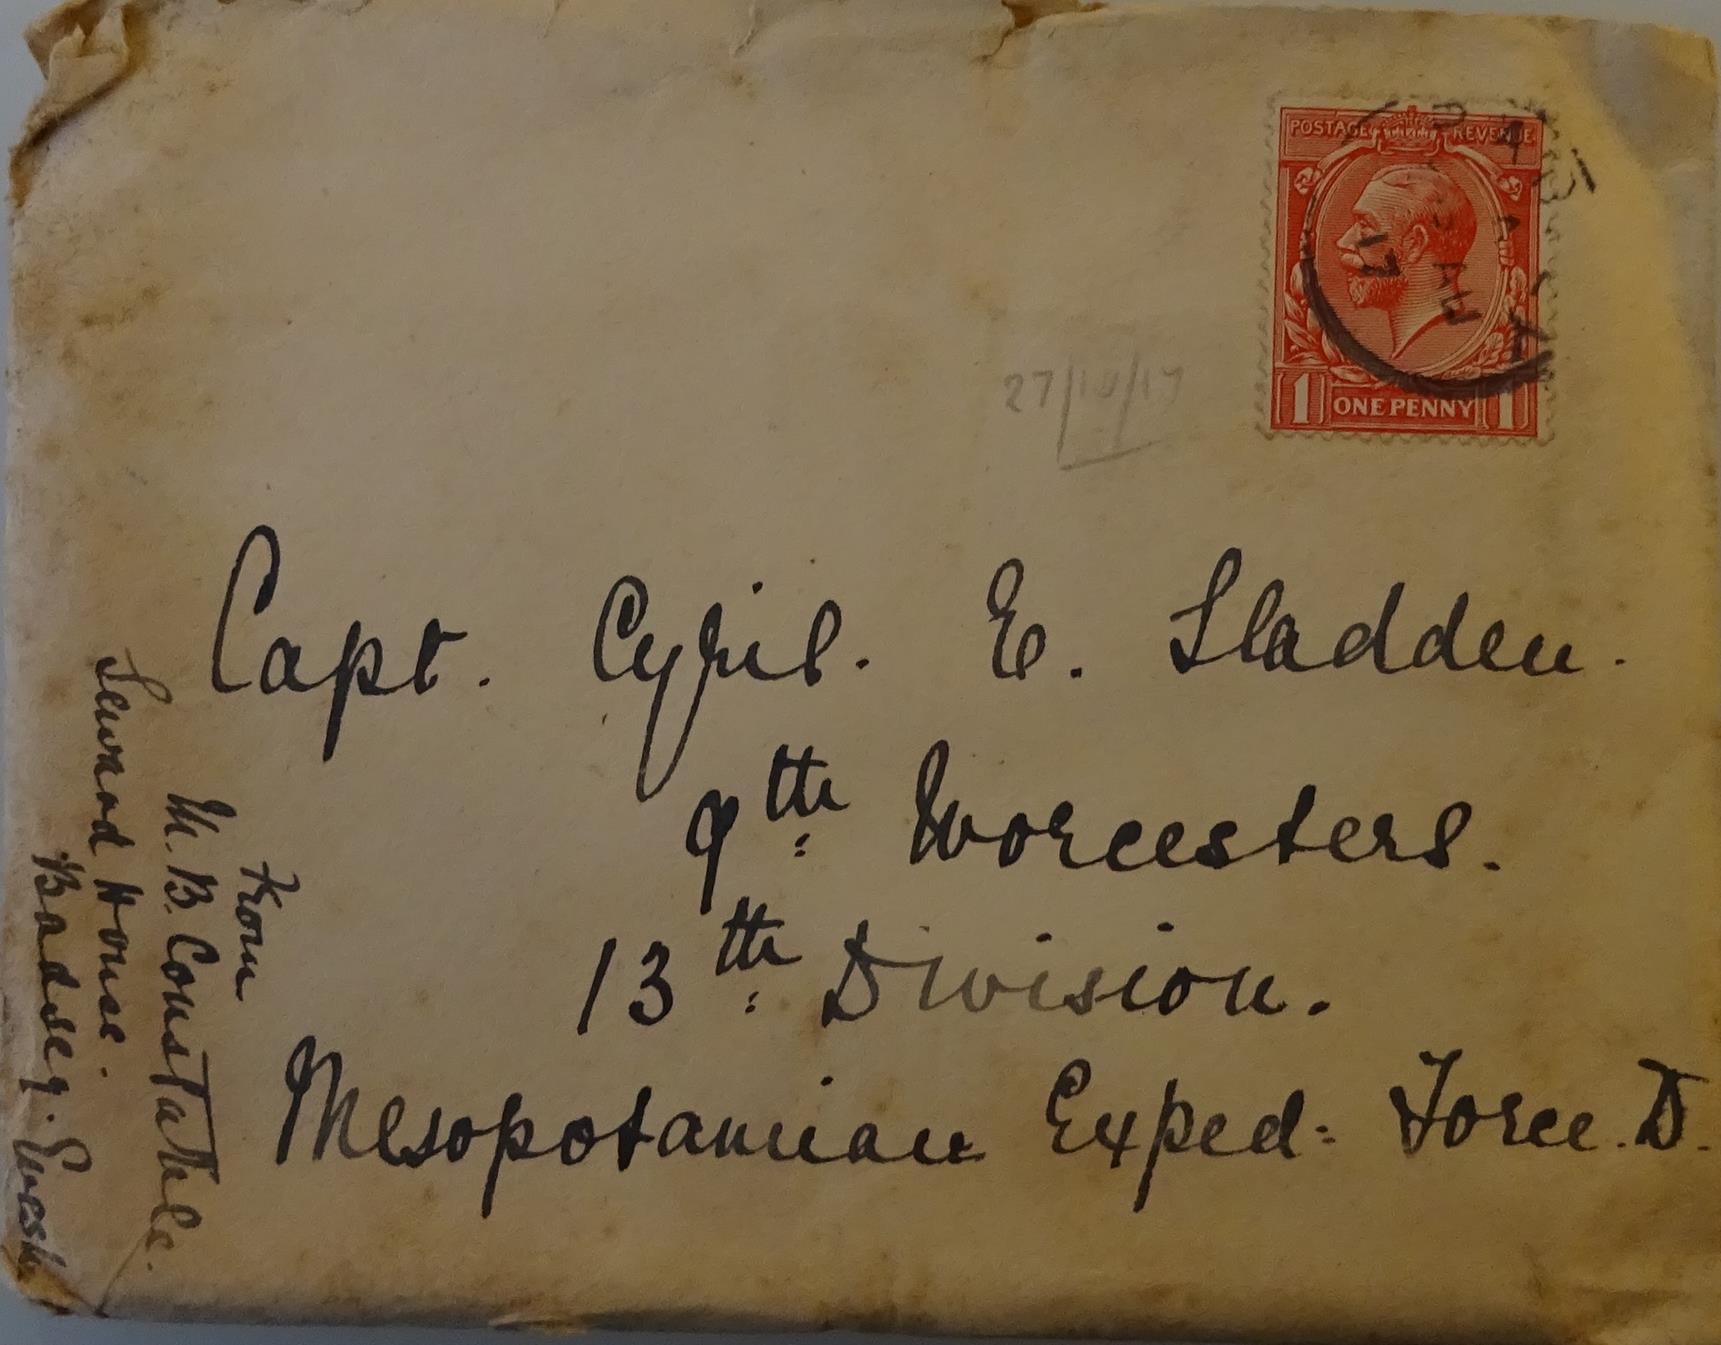 POSTAGE REVENUE
17
1 ONE PENNY 1
27/10/17
Capt. Cyril. E. Sladden.
9th: Worcesters.
13th: Division.
Mesopotamian Exped: Force. D.
From
M. B. Constable.
Seward House.
Badsey. Evesh